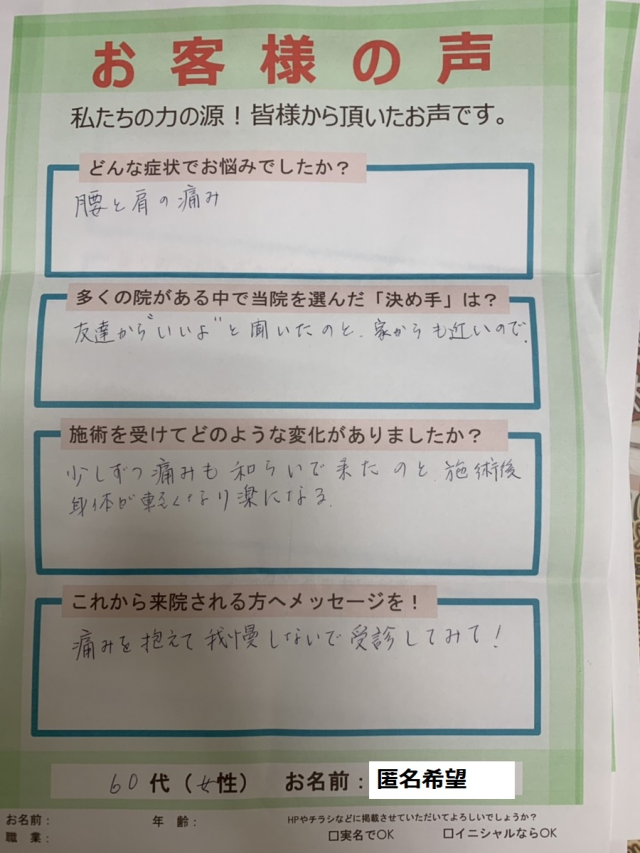 お客様の声
私たちの力の源！皆様から頂いたお声です。
どんな症状でお悩みでしたか？
腰と肩の痛み
多くの院がある中で当院を選んだ「決め手」は？
友達から"いいよ"と聞いたのと、家からも近いので、
施術を受けてどのような変化がありましたか？
少しずつ痛みも和らいで来たのと、施術後
身体が軽くなり楽になる。
これから来院される方へメッセージを！
痛みを抱えて我慢しないで受診してみて！
60代（女性） お名前：匿名希望
お名前： 年齢： HPやチラシなどに掲載させていただいてよろしいでしょうか？
職業： □実名でOK □イニシャルならOK